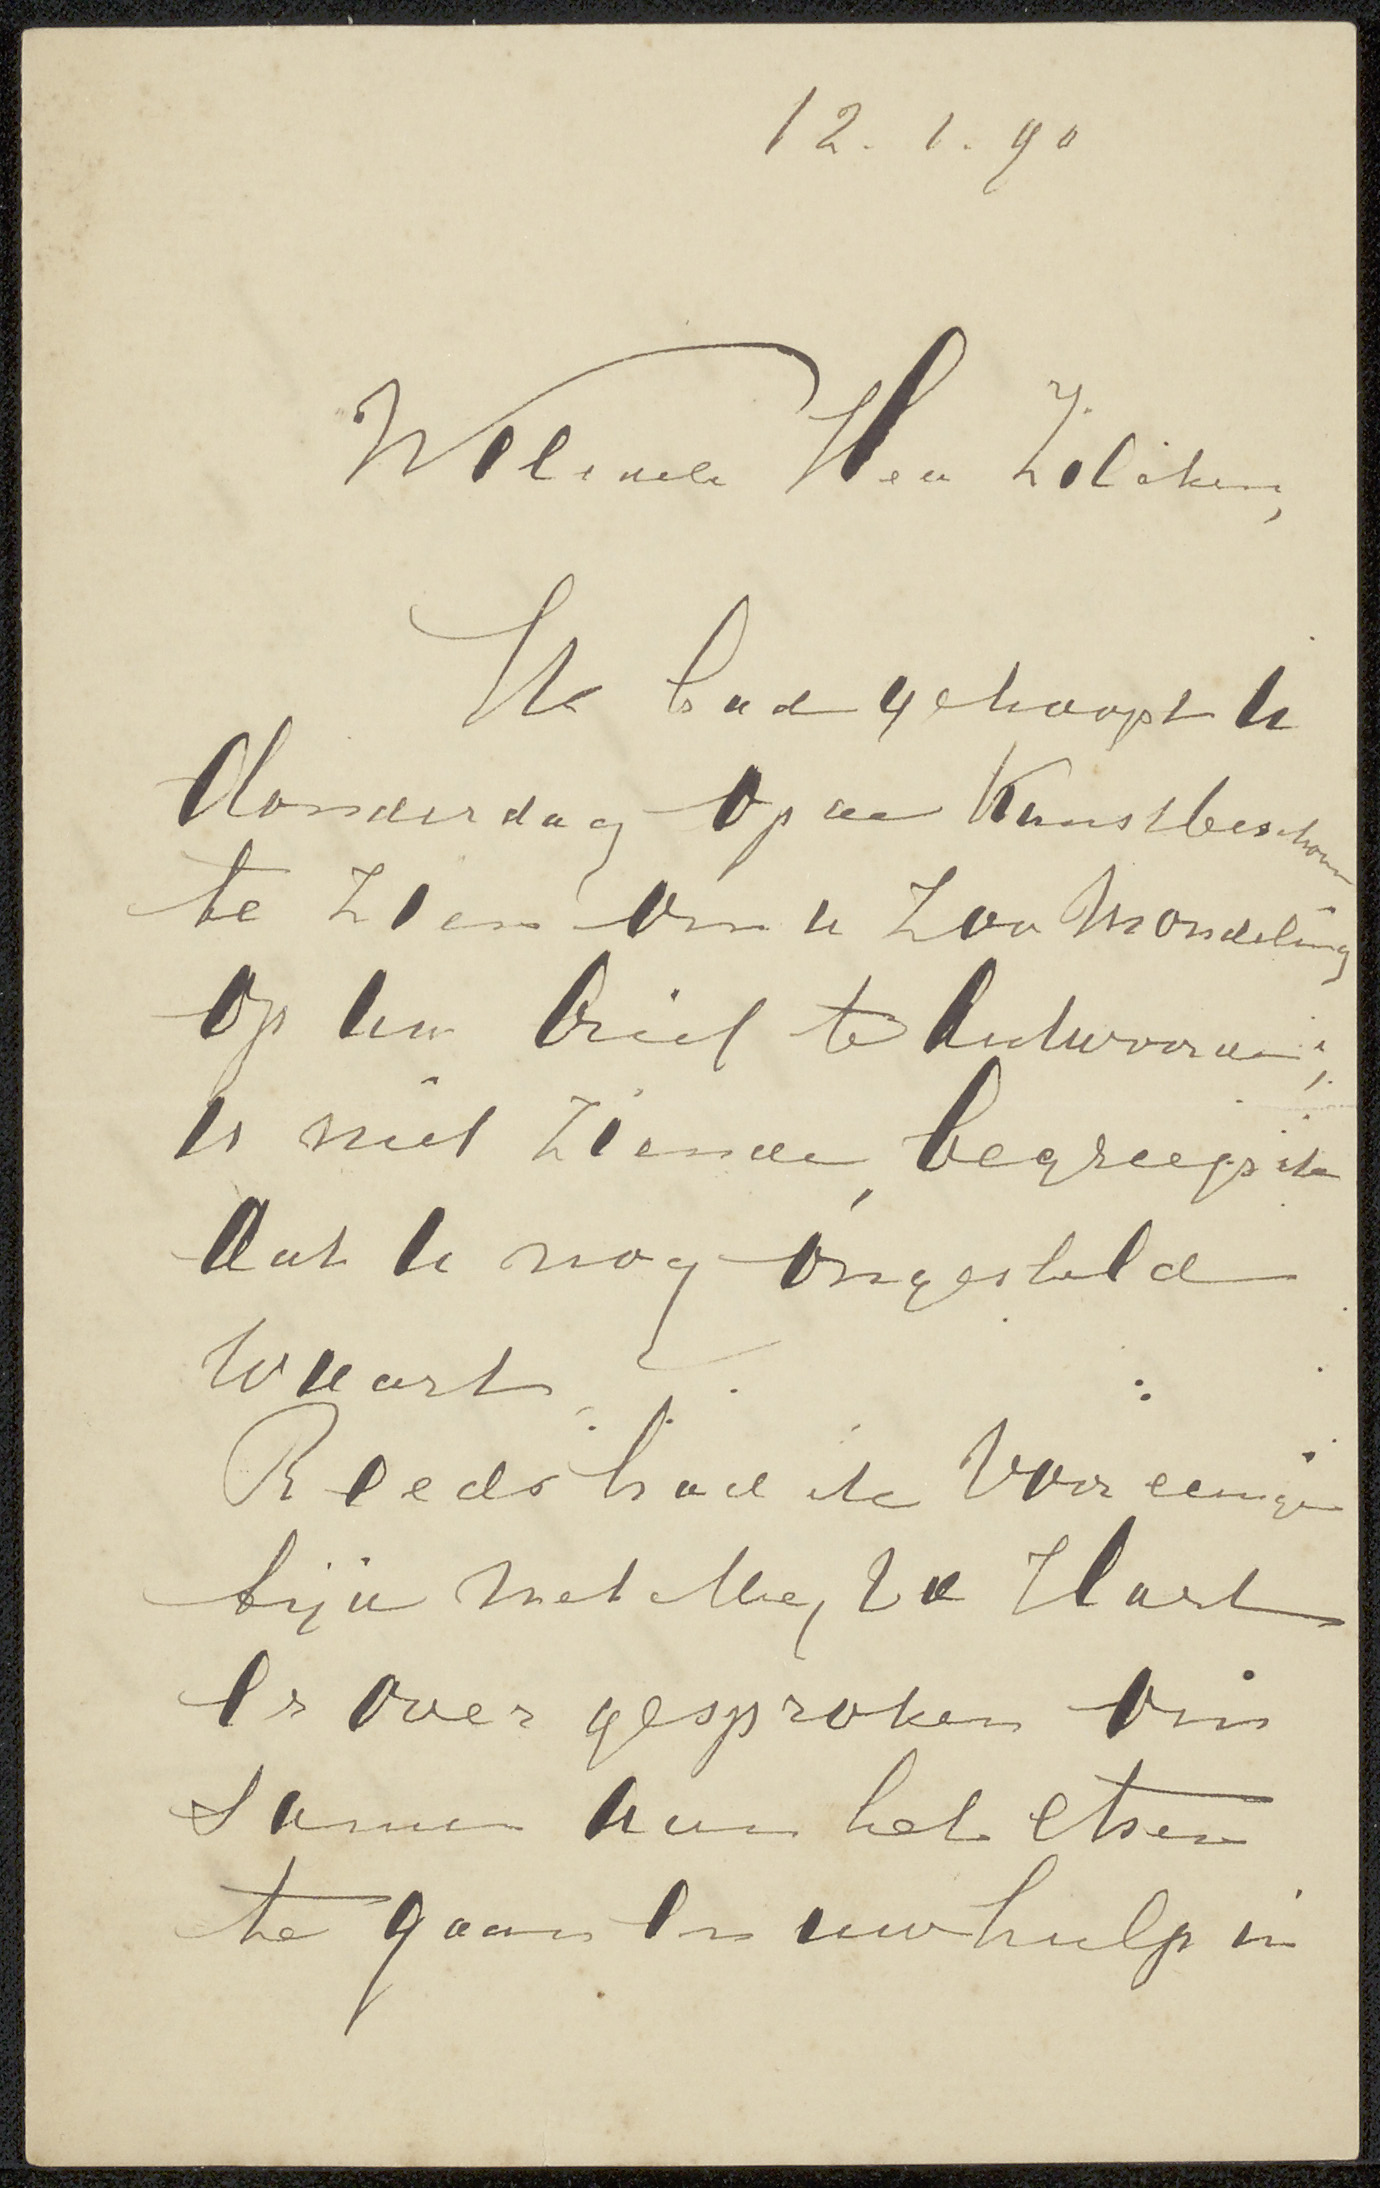 12.1.90
WelEdele Heer Zilcken,
Ik had gehoopt U
Donderdag op de Kunstbeschouw
te zien om U zoo mondeling
op Uw brief te antwoorden;
U niet ziende, begreep ik
dat U nog ongesteld
waart.
Reeds had ik voor eenigen
tijd met Mej. v. d. Hart
er over gesproken om
samen aan het etsen
te gaan en uw hulp in